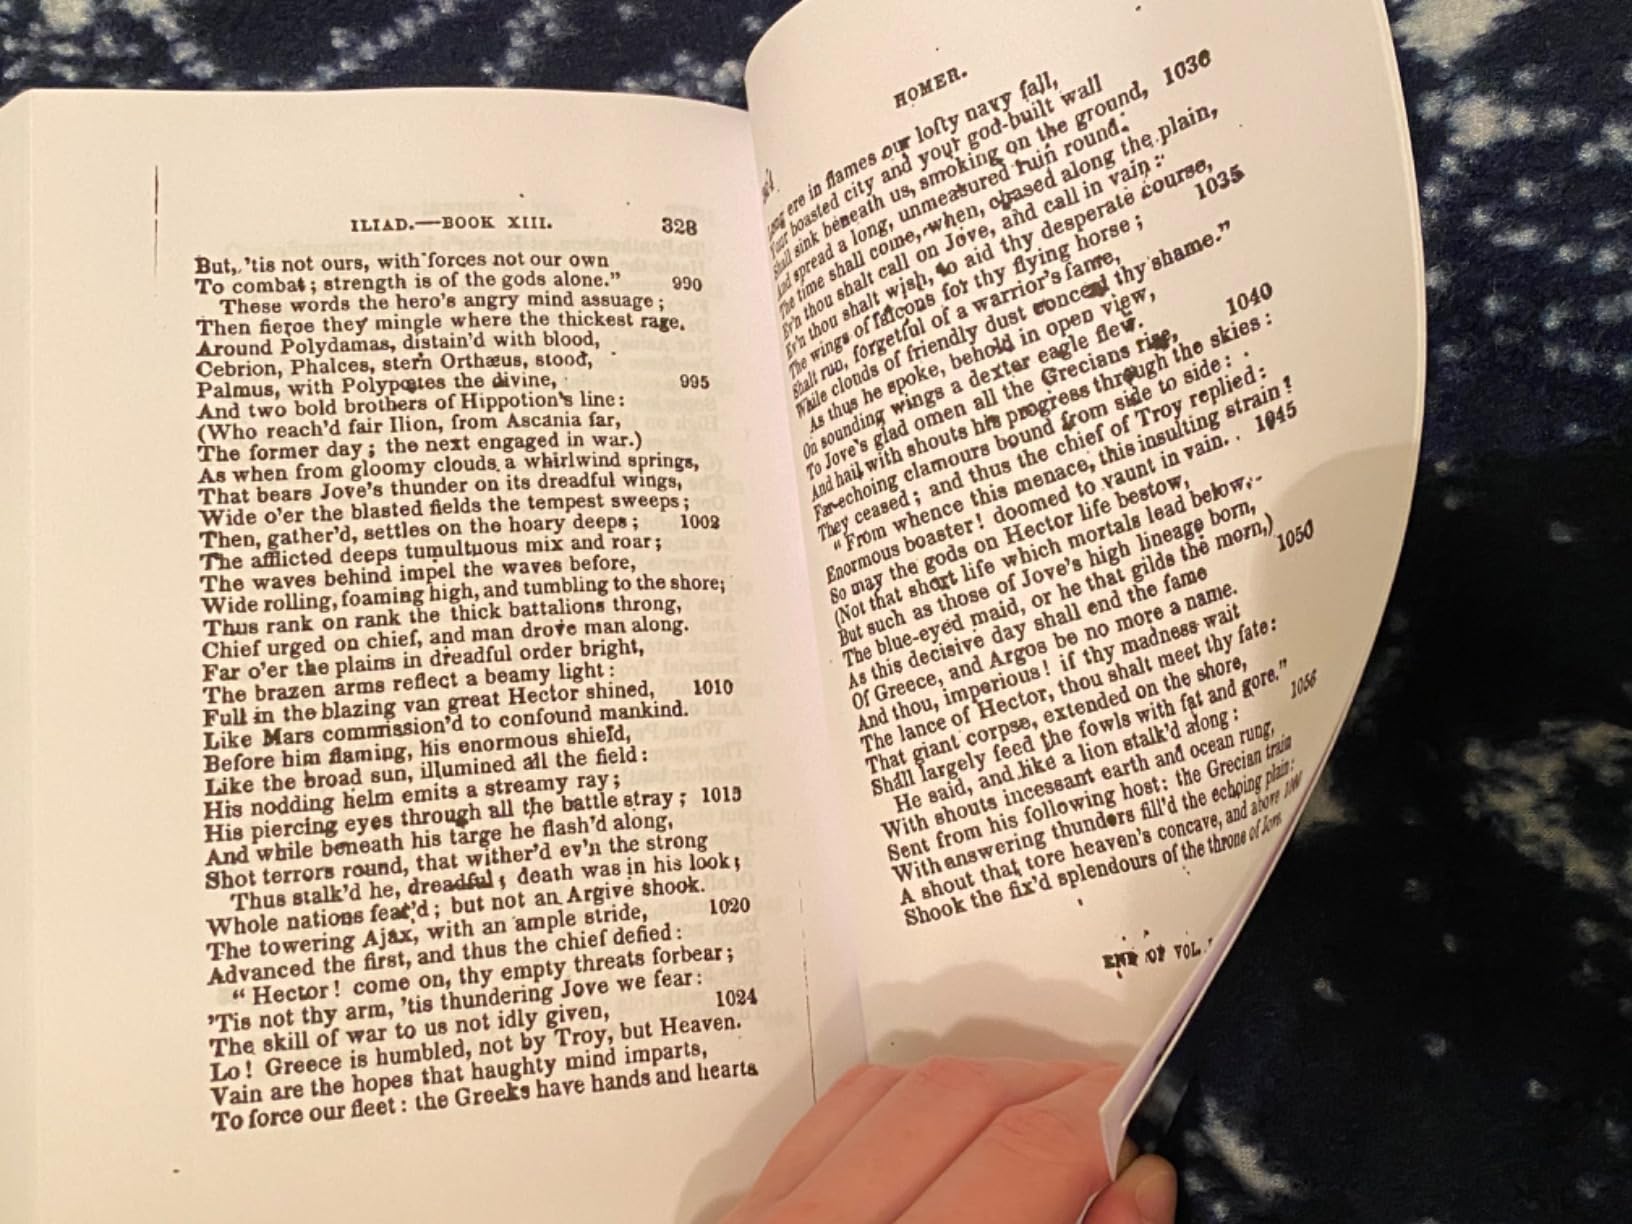 ILIAD.—BOOK XIII. 328
But, 'tis not ours, with forces not our own
To combat; strength is of the gods alone." 990
These words the hero's angry mind assuage;
Then fierce they mingle where the thickest rage.
Around Polydamas, distain'd with blood,
Cebrion, Phalces, stern Orthæus, stood,
Palmus, with Polypœtes the divine, 995
And two bold brothers of Hippotion's line:
(Who reach'd fair Ilion, from Ascania far,
The former day; the next engaged in war.)
As when from gloomy clouds a whirlwind springs,
That bears Jove's thunder on its dreadful wings,
Wide o'er the blasted fields the tempest sweeps;
Then, gather'd, settles on the hoary deeps; 1002
The afflicted deeps tumultuous mix and roar;
The waves behind impel the waves before,
Wide rolling, foaming high, and tumbling to the shore;
Thus rank on rank the thick battalions throng,
Chief urged on chief, and man drove man along.
Far o'er the plains in dreadful order bright,
The brazen arms reflect a beamy light:
Full in the blazing van great Hector shined, 1010
Like Mars commission'd to confound mankind.
Before him flaming, his enormous shield,
Like the broad sun, illumined all the field:
His nodding helm emits a streamy ray;
His piercing eyes through all the battle stray; 1015
And while beneath his targe he flash'd along,
Shot terrors round, that wither'd ev'n the strong
Thus stalk'd he, dreadful; death was in his look;
Whole nations fear'd; but not an Argive shook.
The towering Ajax, with an ample stride, 1020
Advanced the first, and thus the chief defied:
"Hector! come on, thy empty threats forbear;
'Tis not thy arm, 'tis thundering Jove we fear:
The skill of war to us not idly given, 1024
Lo! Greece is humbled, not by Troy, but Heaven.
Vain are the hopes that haughty mind imparts,
To force our fleet: the Greeks have hands and hearts
HOMER.
Long ere in flames our lofty navy fall,
Your boasted city and your god-built wall
Shall sink beneath us, smoking on the ground, 1030
And spread a long, unmeasured ruin round:
The time shall come, when, chased along the plain,
Ev'n thou shalt call on Jove, and call in vain:
Ev'n thou shalt wish, to aid thy desperate course,
The wings of falcons for thy flying horse; 1035
Shalt run, forgetful of a warrior's fame,
While clouds of friendly dust conceal thy shame."
As thus he spoke, behold in open view,
On sounding wings a dexter eagle flew.
To Jove's glad omen all the Grecians rise, 1040
And hail with shouts his progress through the skies:
Far-echoing clamours bound from side to side:
They ceased; and thus the chief of Troy replied:
"From whence this menace, this insulting strain?
Enormous boaster! doomed to vaunt in vain. 1045
So may the gods on Hector life bestow,
(Not that short life which mortals lead below,
But such as those of Jove's high lineage born,
The blue-eyed maid, or he that gilds the morn,)
As this decisive day shall end the fame 1050
Of Greece, and Argos be no more a name.
And thou, imperious! if thy madness wait
The lance of Hector, thou shalt meet thy fate:
That giant corpse, extended on the shore,
Shall largely feed the fowls with fat and gore." 1056
He said, and like a lion stalk'd along:
With shouts incessant earth and ocean rung,
Sent from his following host: the Grecian train
With answering thunders fill'd the echoing plain:
A shout that tore heaven's concave, and above
Shook the fix'd splendours of the throne of Jove
END OF VOL.